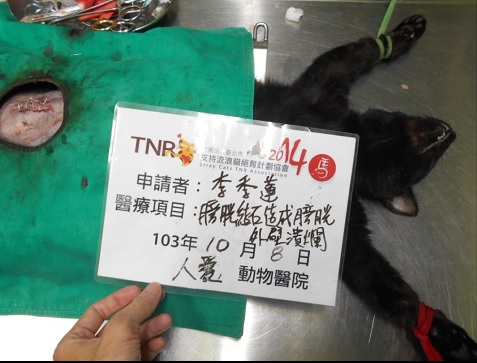 TNR 2014 馬
支持流浪貓絕育計劃協會
Stray Cats TNR Association
申請者：李季蓮
醫療項目：膀胱結石造成膀胱
外壁潰爛
103年10月8日
人愛 動物醫院